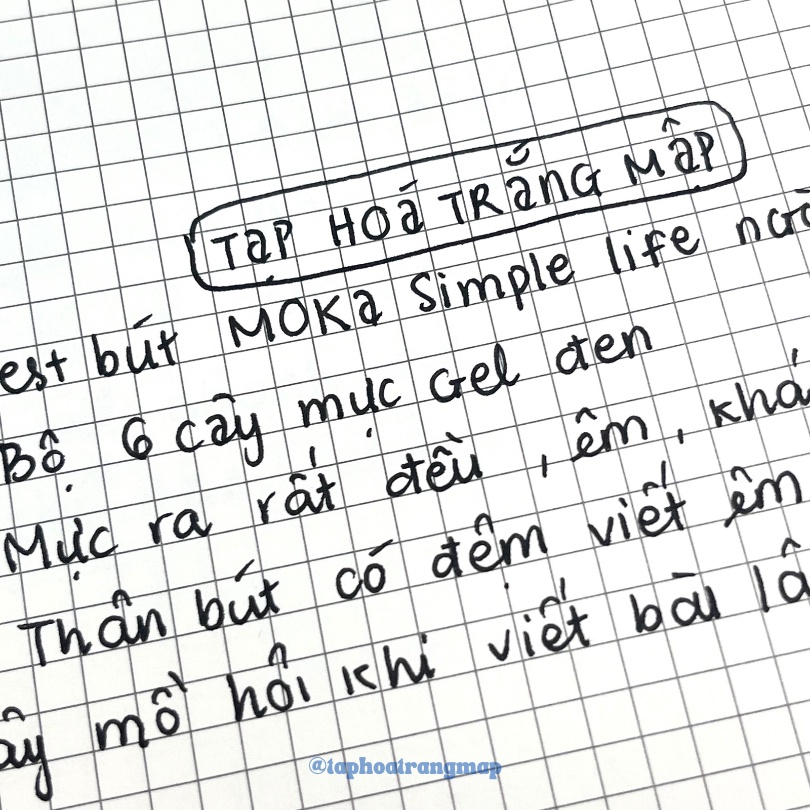 TẠP HOÁ TRẮNG MẬP
est bút MOKA Simple life
Bộ 6 cây mực Gel đen
Mực ra rất đều, êm, khá
Thân bút có đệm viết êm
ây mồ hôi khi viết bài lâ
@taphoatrangmap